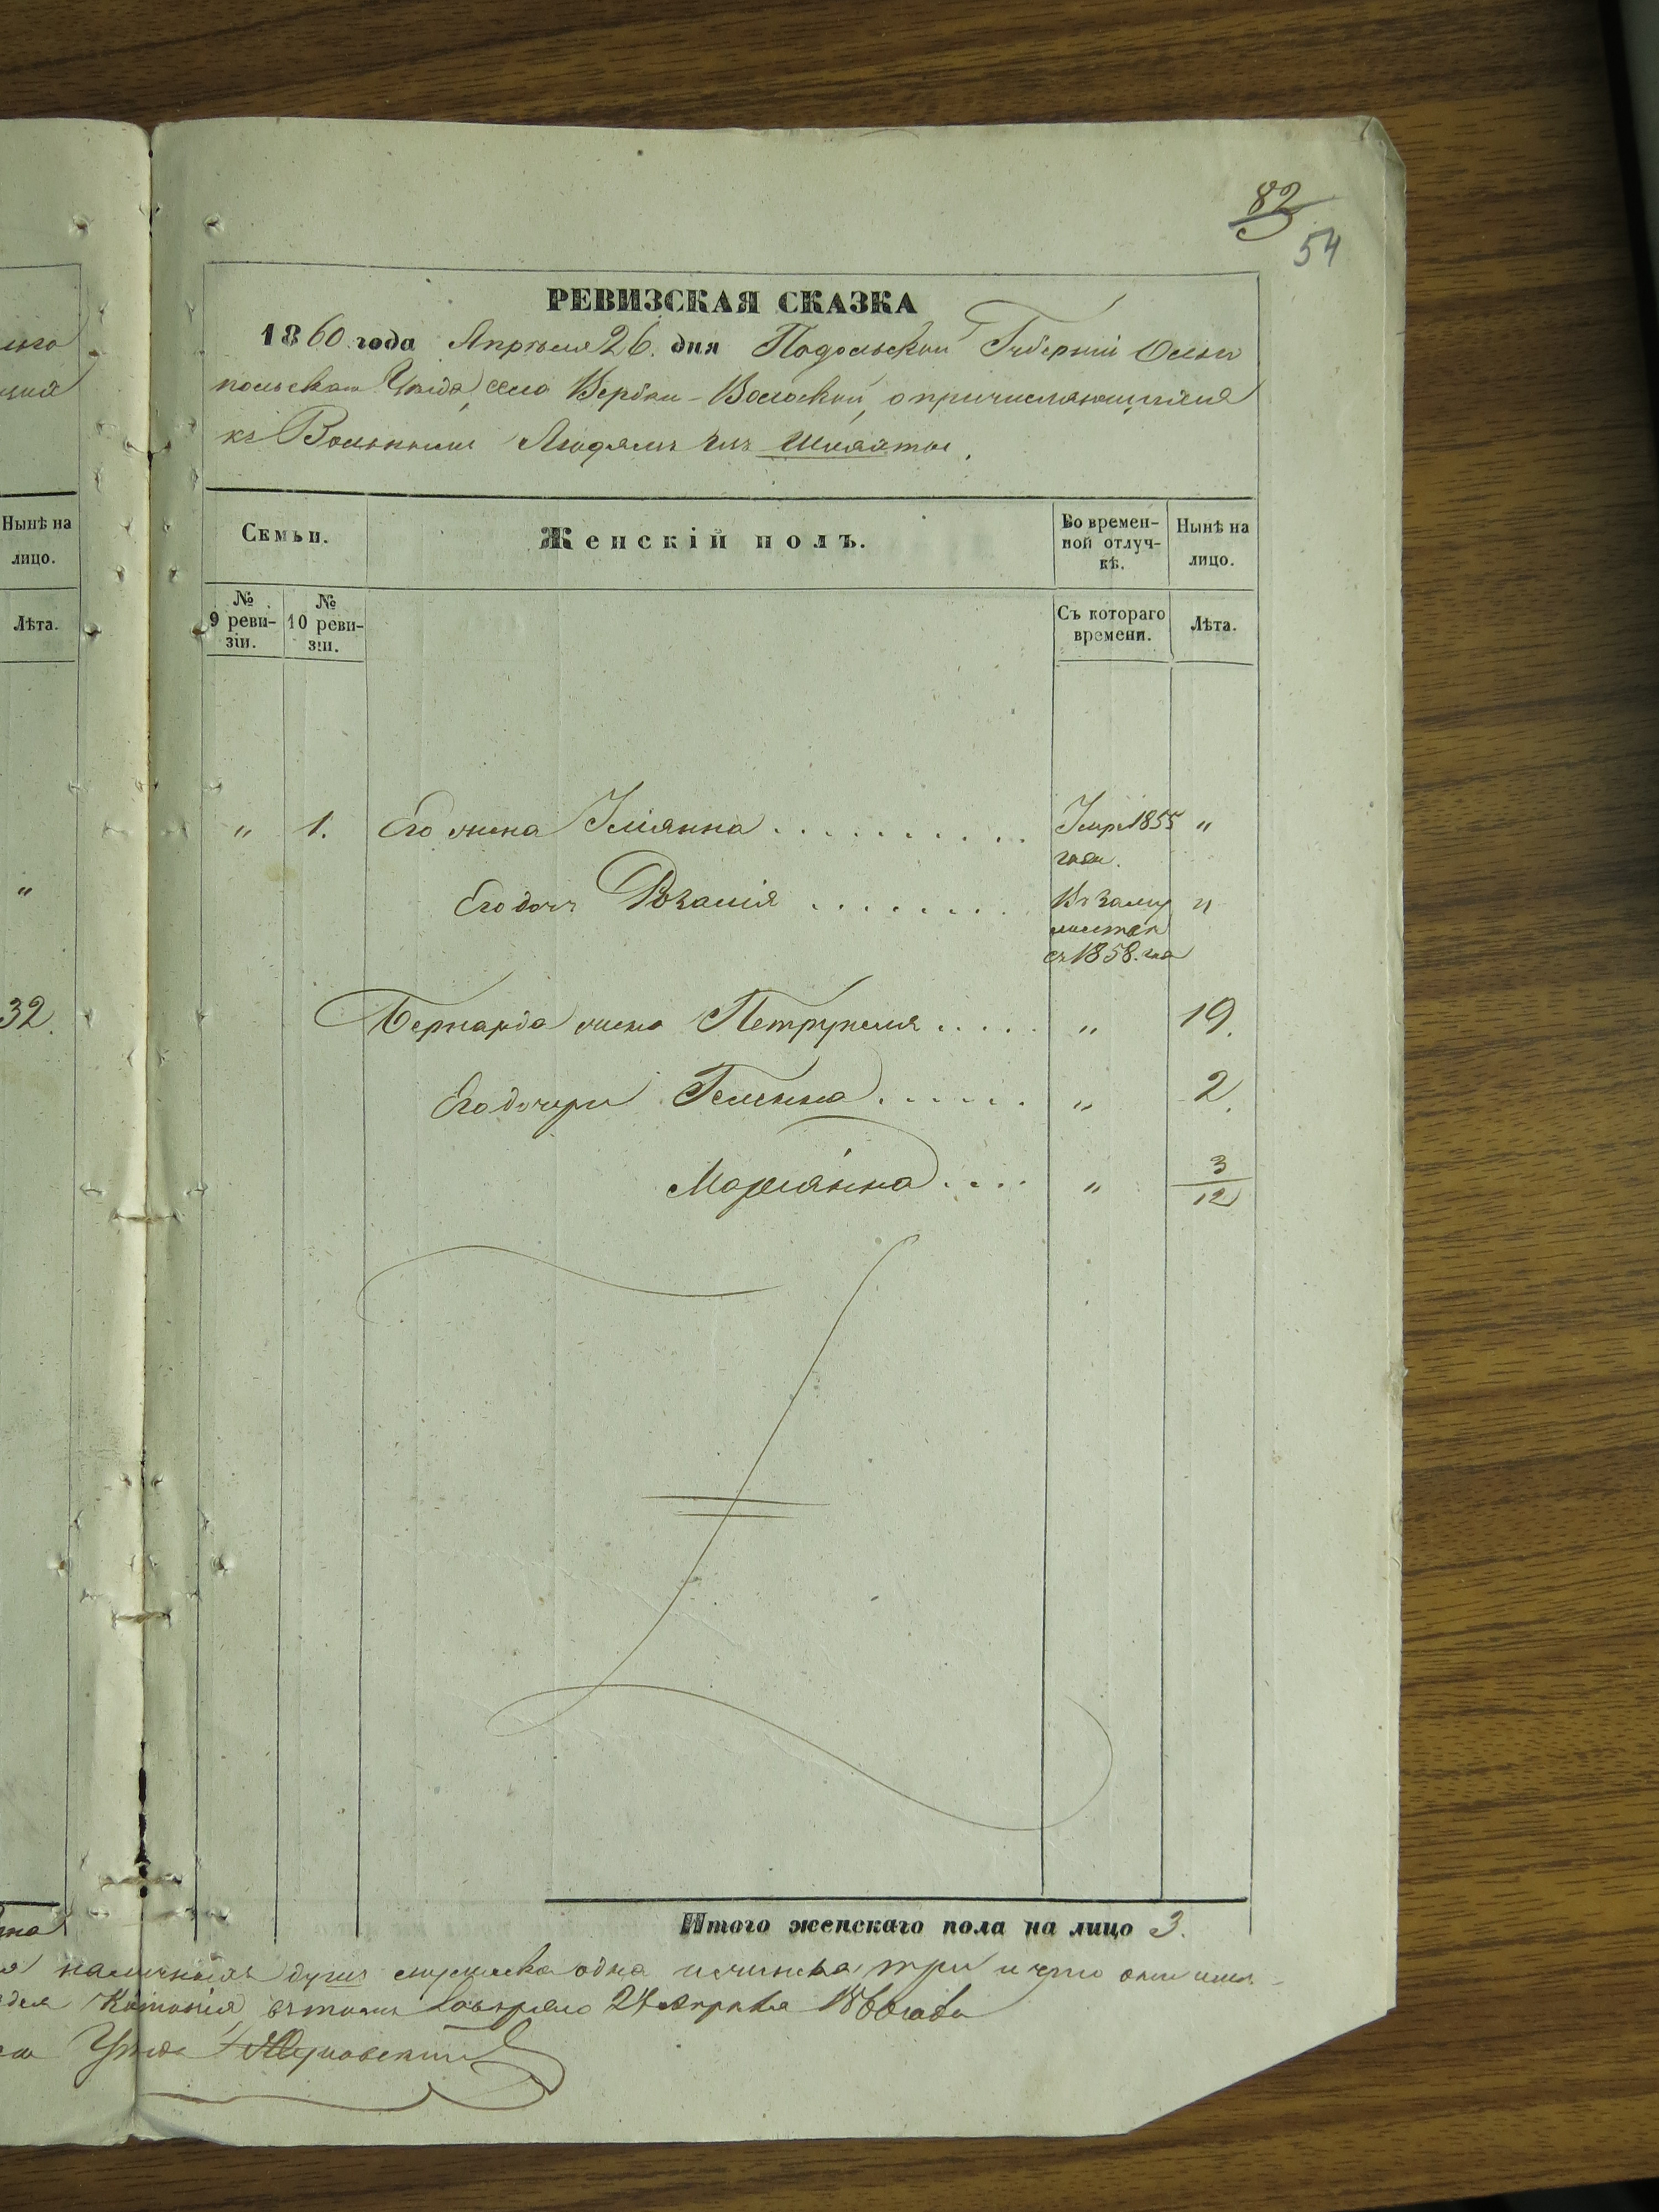 82
54
РЕВИЗСКАЯ СКАЗКА
1860 года Апреля 26. дня Подольской Губерніи Ольго
польскаго Уезда села Вербки-Волоской, о причисляющихся
къ Вольнымъ Людямъ изъ Шляхты.
Нынѣ на
лицо.
Семьи.
Женскій полъ.
Во времен-
ной отлуч-
кѣ.
Нынѣ на
лицо.
Лѣта.
№
9 реви-
зіи.
№
10 реви-
зіи.
Съ котораго
времени.
Лѣта.
" 1. Его жена Юліянна . . . . . . . . . . Умр: 1855 "
года.
" Его дочь Розалія . . . . . . . . Въ заму "
съ 1858. года
32. Бернарда жена Петрунеля . . . . . " 19.
Его дочери Геленна . . . . . . " 2.
Маріянна . . . . " 3/12
Итого женскаго пола на лицо 3.
наличныхъ душъ мужеска одна и женска три и что они
въ томъ 27 Апреля 1860 года
Уезда